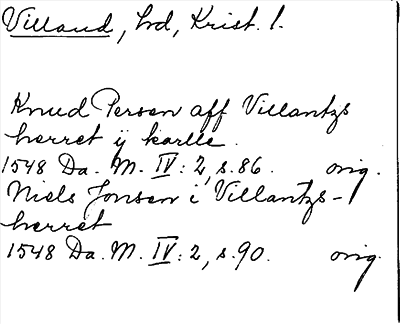 Villand, hd, Krist. l.
Knud Person aff Villantzs
herret ij karlle.
1548 Da. M. IV: 2, s. 86. orig.
Niels Jonson i Villantzs-
herret
1548 Da. M. IV: 2, s. 90. orig.